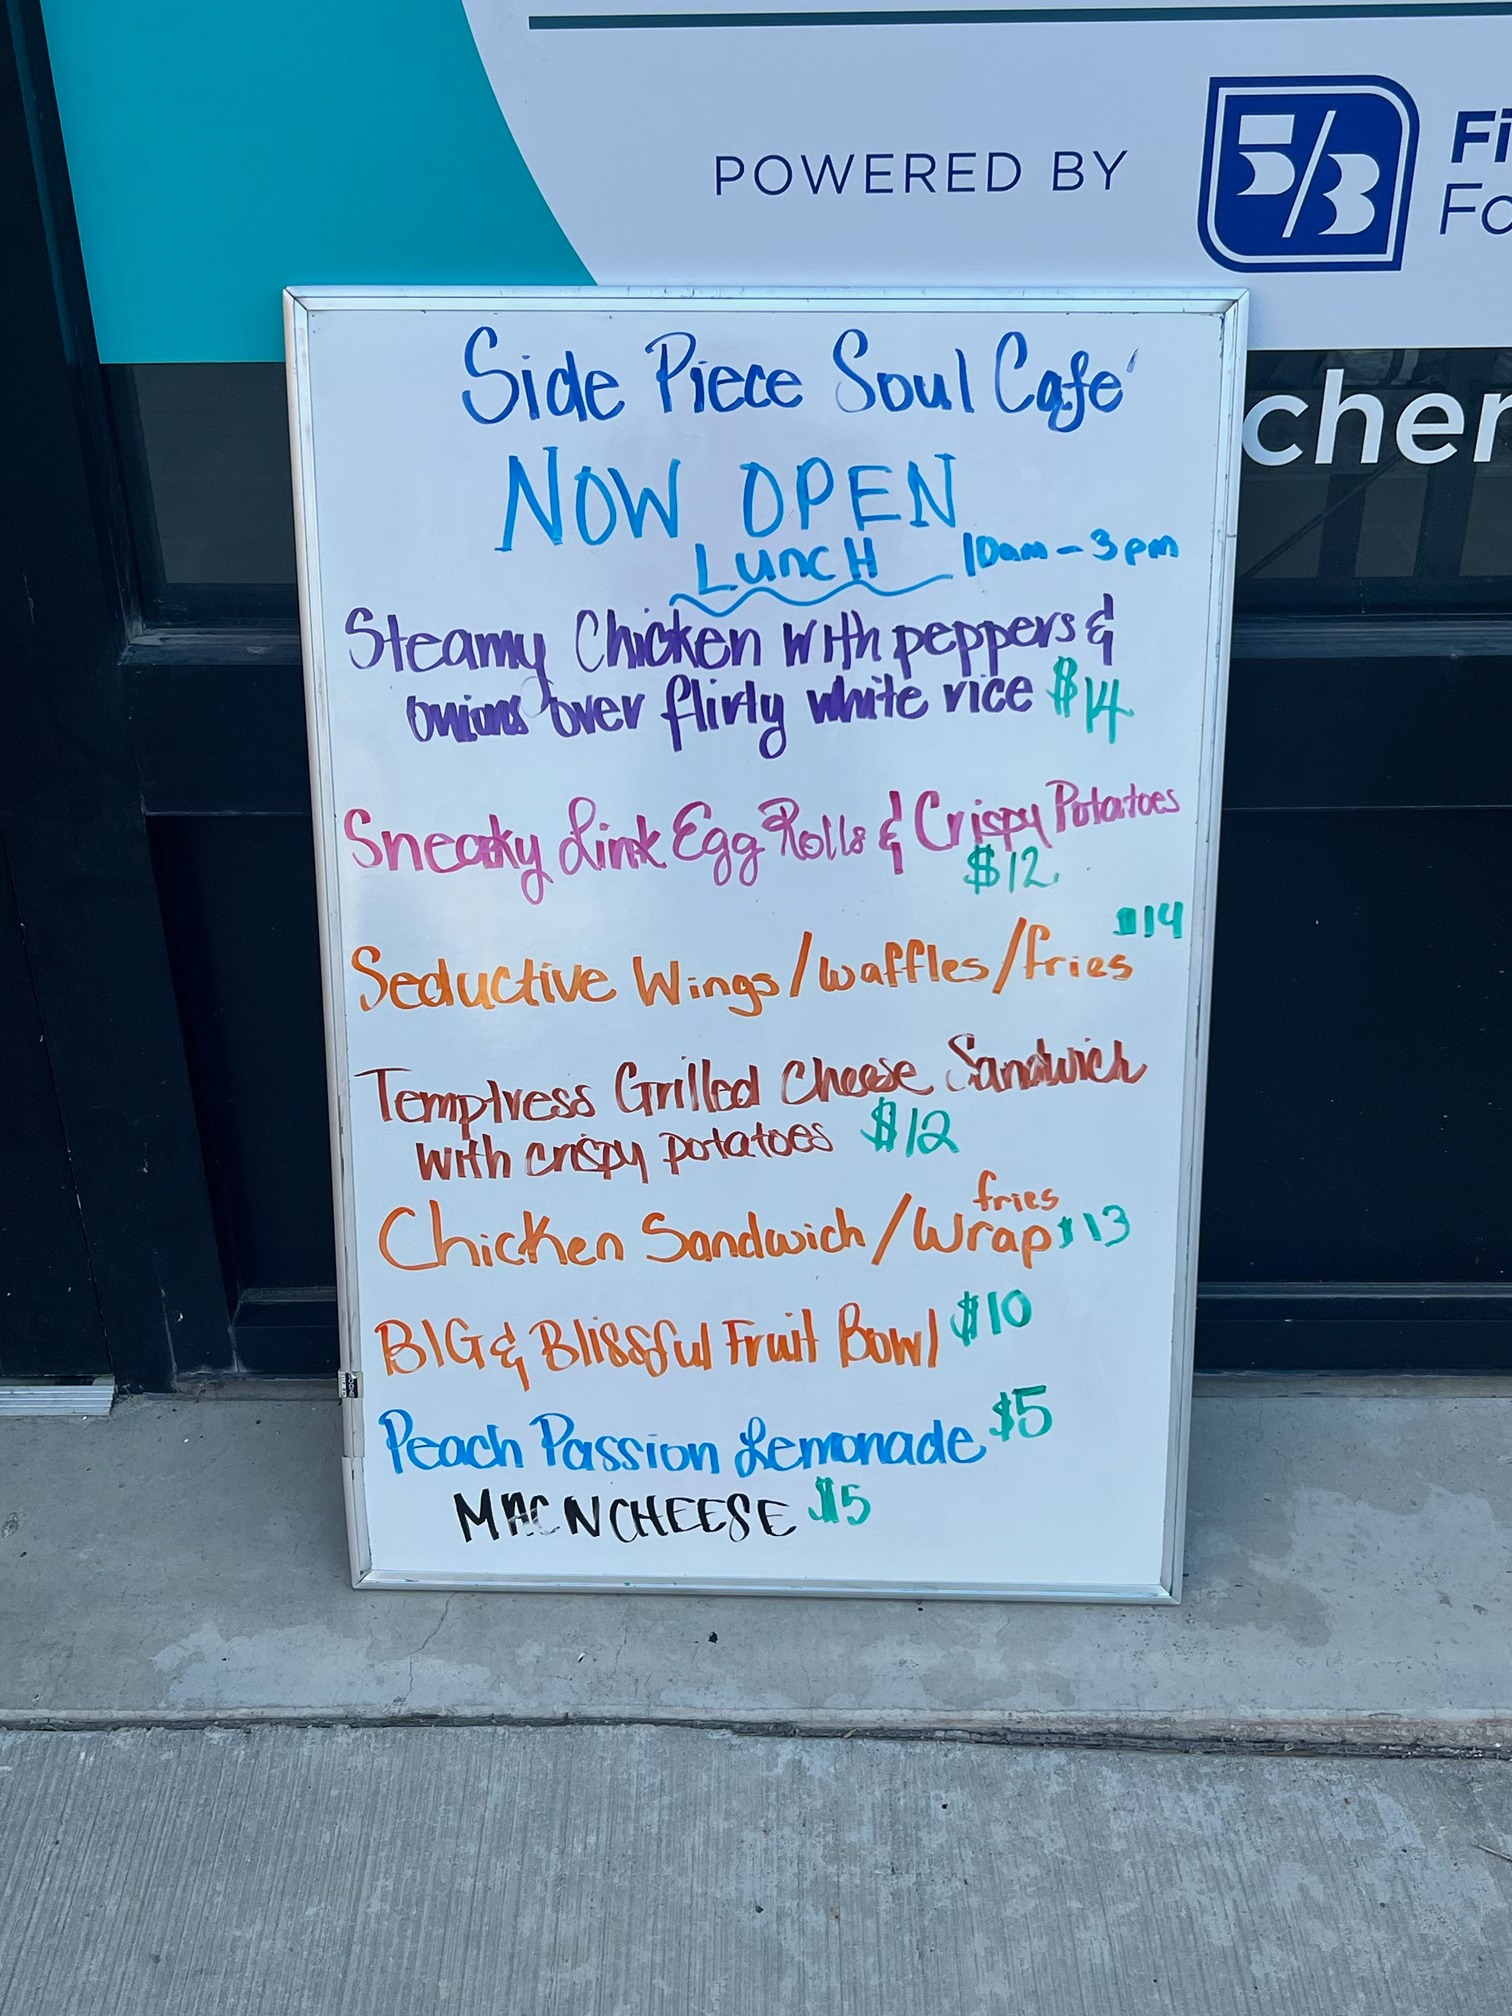 POWERED BY
5/3
Fi
Fo
cher
Side Piece Soul Cafe'
NOW OPEN
LUNCH 10am - 3pm
Steamy Chicken with peppers &
onions over flirty white rice $14
Sneaky Link Egg Rolls & Crispy Potatoes
$12
$14
Seductive Wings/waffles/fries
Temptress Grilled Cheese Sandwich
with crispy potatoes $12
fries
Chicken Sandwich/Wrap $13
BIG & Blissful Fruit Bowl $10
Peach Passion Lemonade $5
MAC N CHEESE $5